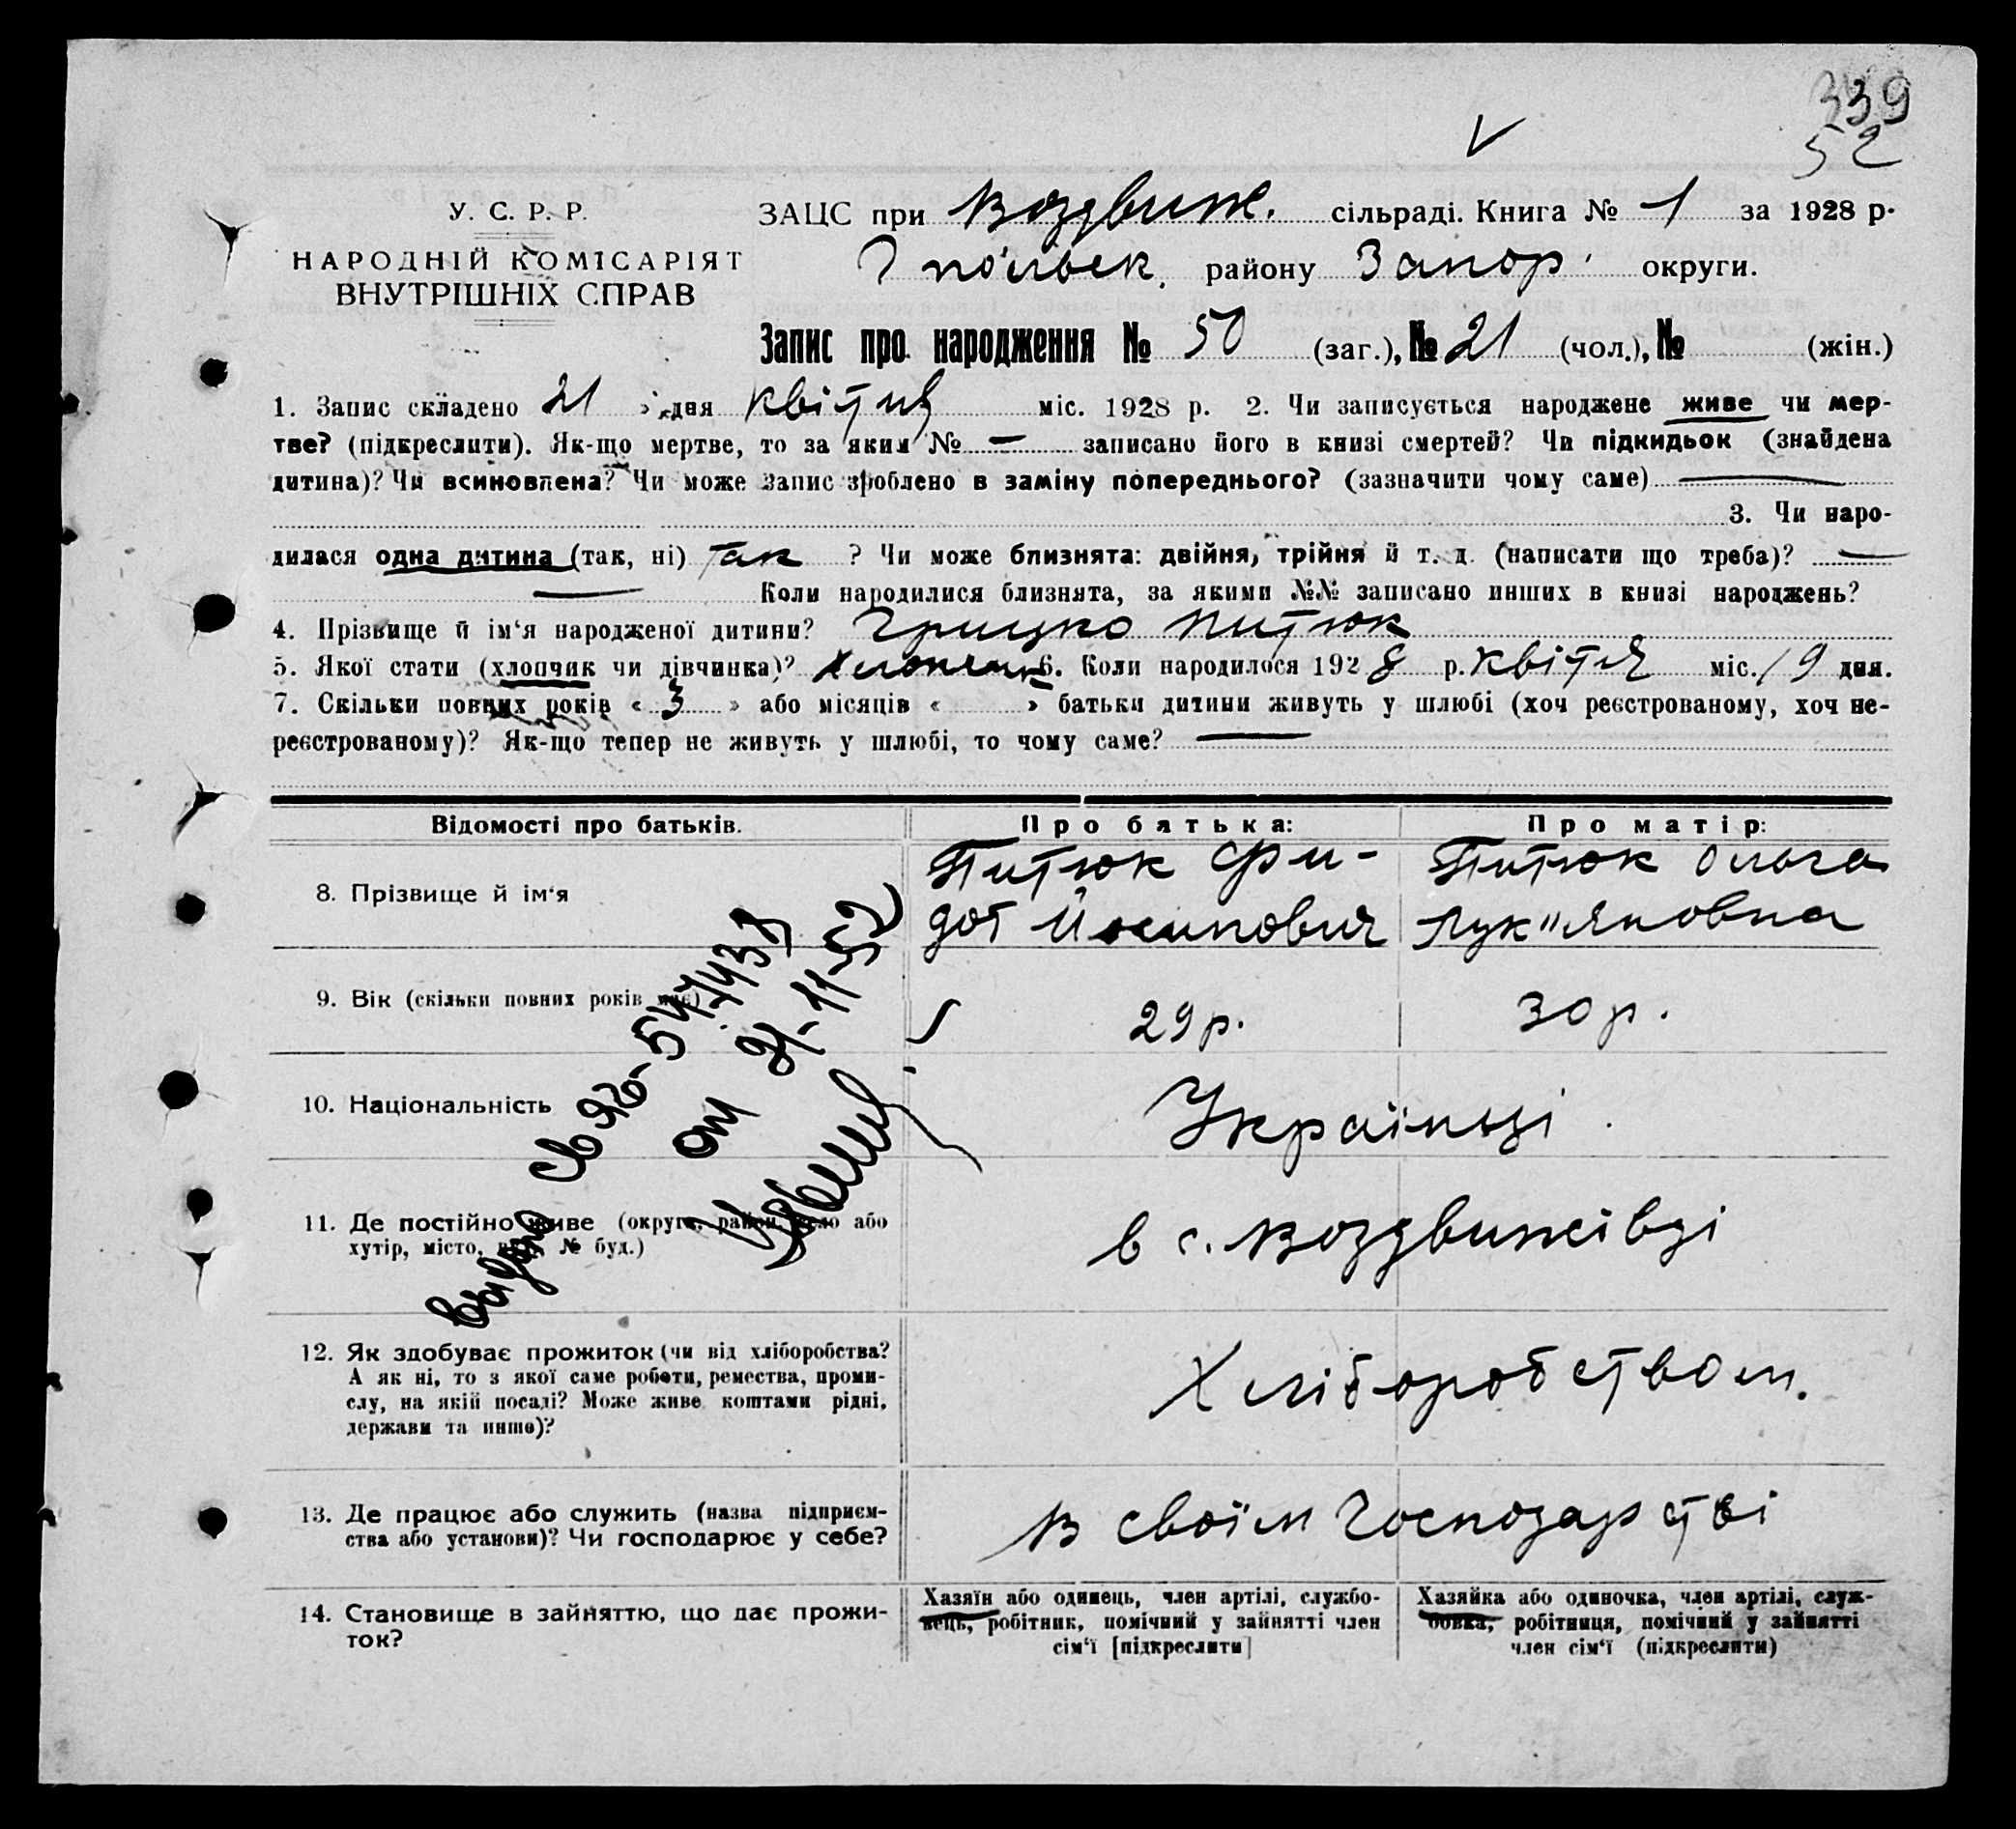 339
52
У. С. Р. Р.
НАРОДНІЙ КОМІСАРІЯТ
ВНУТРІШНІХ СПРАВ
ЗАЦС при Воздвиж. сільраді. Книга № 1 за 1928 р.
району Запор. округи.
Запис про народження № 50 (заг.), № 21 (чол.), № (жін.)
1. Запис складено 21 дня квітня міс. 1928 р. 2. Чи записується народжене живе чи мер-
тве? (підкреслити). Як-що мертве, то за яким № — записано його в книзі смертей? Чи підкидьок (знайдена
дитина)? Чи всиновлена? Чи може запис зроблено в заміну попереднього? (зазначити чому саме) —
3. Чи наро-
дилася одна дитина (так, ні) так ? Чи може близнята: двійня, трійня й т. д. (написати що треба)? —
— Коли народилися близнята, за якими №№ записано инших в книзі народжень?
4. Прізвище й ім‘я народженої дитини? Грицько Питюк
5. Якої стати (хлопчик чи дівчинка)? Хлопчик 6. Коли народилося 1928 р. квітня міс. 19 дня.
7. Скільки повних років « 3 » або місяців « » батьки дитини живуть у шлюбі (хоч реєстрованому, хоч не-
реєстрованому)? Як-що тепер не живуть у шлюбі, то чому саме? —
Відомості про батьків.
Про батька:
Про матір:
8. Прізвище й ім‘я
Питюк Фи-
дот Йосипович
Питюк Ольга
Лук"яновна
9. Вік (скільки повних років має)
29 р.
30 р.
10. Національність
Українці
11. Де постійно живе (округа, район, село або
хутір, місто, вул. № буд.)
в с. Воздвижівці
12. Як здобуває прожиток (чи від хліборобства?
А як ні, то з якої саме роботи, ремества, проми-
слу, на якій посаді? Може живе коштами рідні,
держави та инше)?
Хліборобством.
13. Де працює або служить (назва підприєм-
ства або установи)? Чи господарює у себе?
В своїм господарстві
14. Становище в зайняттю, що дає прожи-
ток?
Хазяїн або одинець, член артілі, службо-
вець, робітник, помічний у зайнятті член
сім‘ї [підкреслити]
Хазяйка або одиночка, член артілі, служ-
бовка, робітниця, помічний у зайнятті
член сім‘ї (підкреслити)
выдано
от 21-11-52